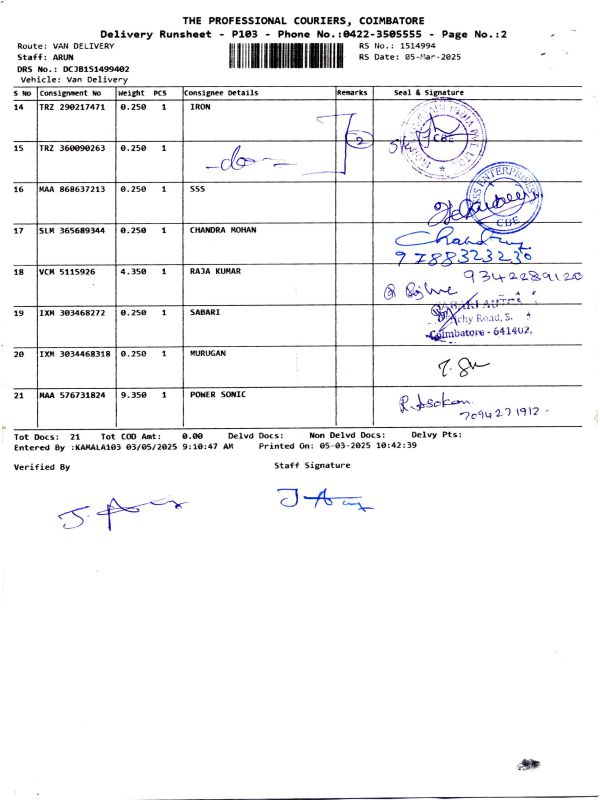 THE PROFESSIONAL COURIERS, COIMBATORE
Delivery Runsheet - P103 - Phone No.:0422-3505555 - Page No.:2
Route: VAN DELIVERY RS No.: 1514994
Staff: ARUN RS Date: 05-Mar-2025
DRS No.: DCJB151499402
Vehicle: Van Delivery
S No Consignment No Weight PCS Consignee Details Remarks Seal & Signature
14 TRZ 290217471 0.250 1 IRON
2 CBE
15 TRZ 360090263 0.250 1
-do-
16 MAA 868637213 0.250 1 SSS
SSS ENTERPRISES
CBE
17 SLM 365689344 0.250 1 CHANDRA MOHAN
9788323230
18 VCM 5115926 4.350 1 RAJA KUMAR 9342289120
19 IXM 303468272 0.250 1 SABARI
Road, S.
Coimbatore - 641402.
20 IXM 3034468318 0.250 1 MURUGAN
21 MAA 576731824 9.350 1 POWER SONIC
R. Asokan
7094271912
Tot Docs: 21 Tot COD Amt: 0.00 Delvd Docs: Non Delvd Docs: Delvy Pts:
Entered By :KAMALA103 03/05/2025 9:10:47 AM Printed On: 05-03-2025 10:42:39
Verified By Staff Signature